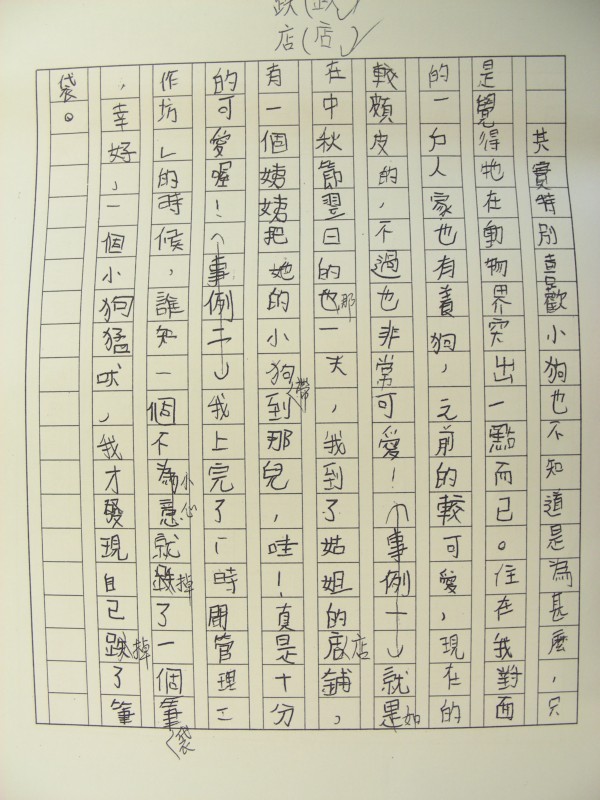 跌(跌)
店(店)
其實特別喜歡小狗也不知道是為甚麼,只
是覺得牠在動物界突出一點而已。住在我對面
的一户人家也有養狗,之前的較可愛,現在的
較頗皮的,不過也非常可愛!(事例一)就是如
在中秋節翌日的也那一天,我到了姑姐的店店鋪,
有一個姨姨把她的小狗帶到那兒,哇!真是十分
的可愛喔!(事例二)我上完了「時間管理工
作坊」的時候,誰知一個不為意小心就跌掉了一個筆袋
,幸好,一個小狗猛吠,我才發現自己跌掉了筆
袋。